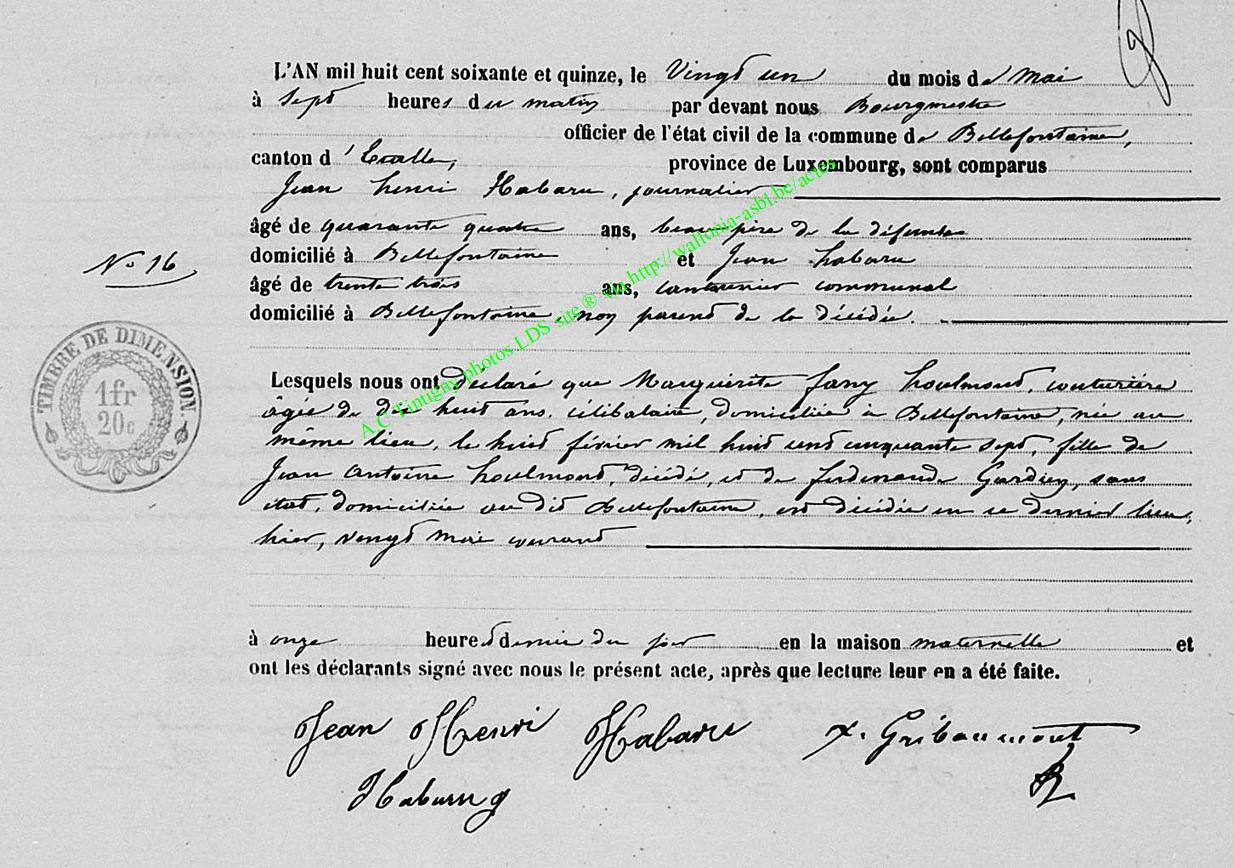 L'AN mil huit cent soixante et quinze, le Vingt un du mois de Mai
à Sept heures du matin par devant nous Bourgmestre
officier de l'état civil de la commune de Bellefontaine,
canton d'Etalle, province de Luxembourg, sont comparus
Jean henri Habaru, journalier
âgé de quarante quatre ans, beau père de la défunte
domicilié à Bellefontaine et Jean habaru
N° 16
âgé de trente trois ans, cantonnier communal
domicilié à Bellefontaine, non parent de la décédée.
TIMBRE DE DIMENSION
1fr
20c
Lesquels nous ont déclaré que Marguerite fany houlmont, couturière
âgée de dix huit ans, célibataire, domiciliée à Bellefontaine, née au
même lieu, le huit février mil huit cent cinquante sept, fille de
Jean Antoine houlmont, décédé, et de ferdinande Gardien, sans
état, domiciliée au dit Bellefontaine, est décédée en ce dernier lieu,
hier, vingt mai courant
à onze heures demie du soir en la maison maternelle et
ont les déclarants signé avec nous le présent acte, après que lecture leur en a été faite.
Jean Henri Habaru x. Gribaumont
Habaru g
A.C Tintigny photos LDS site ® via http://wallonia-asbl.be/actes